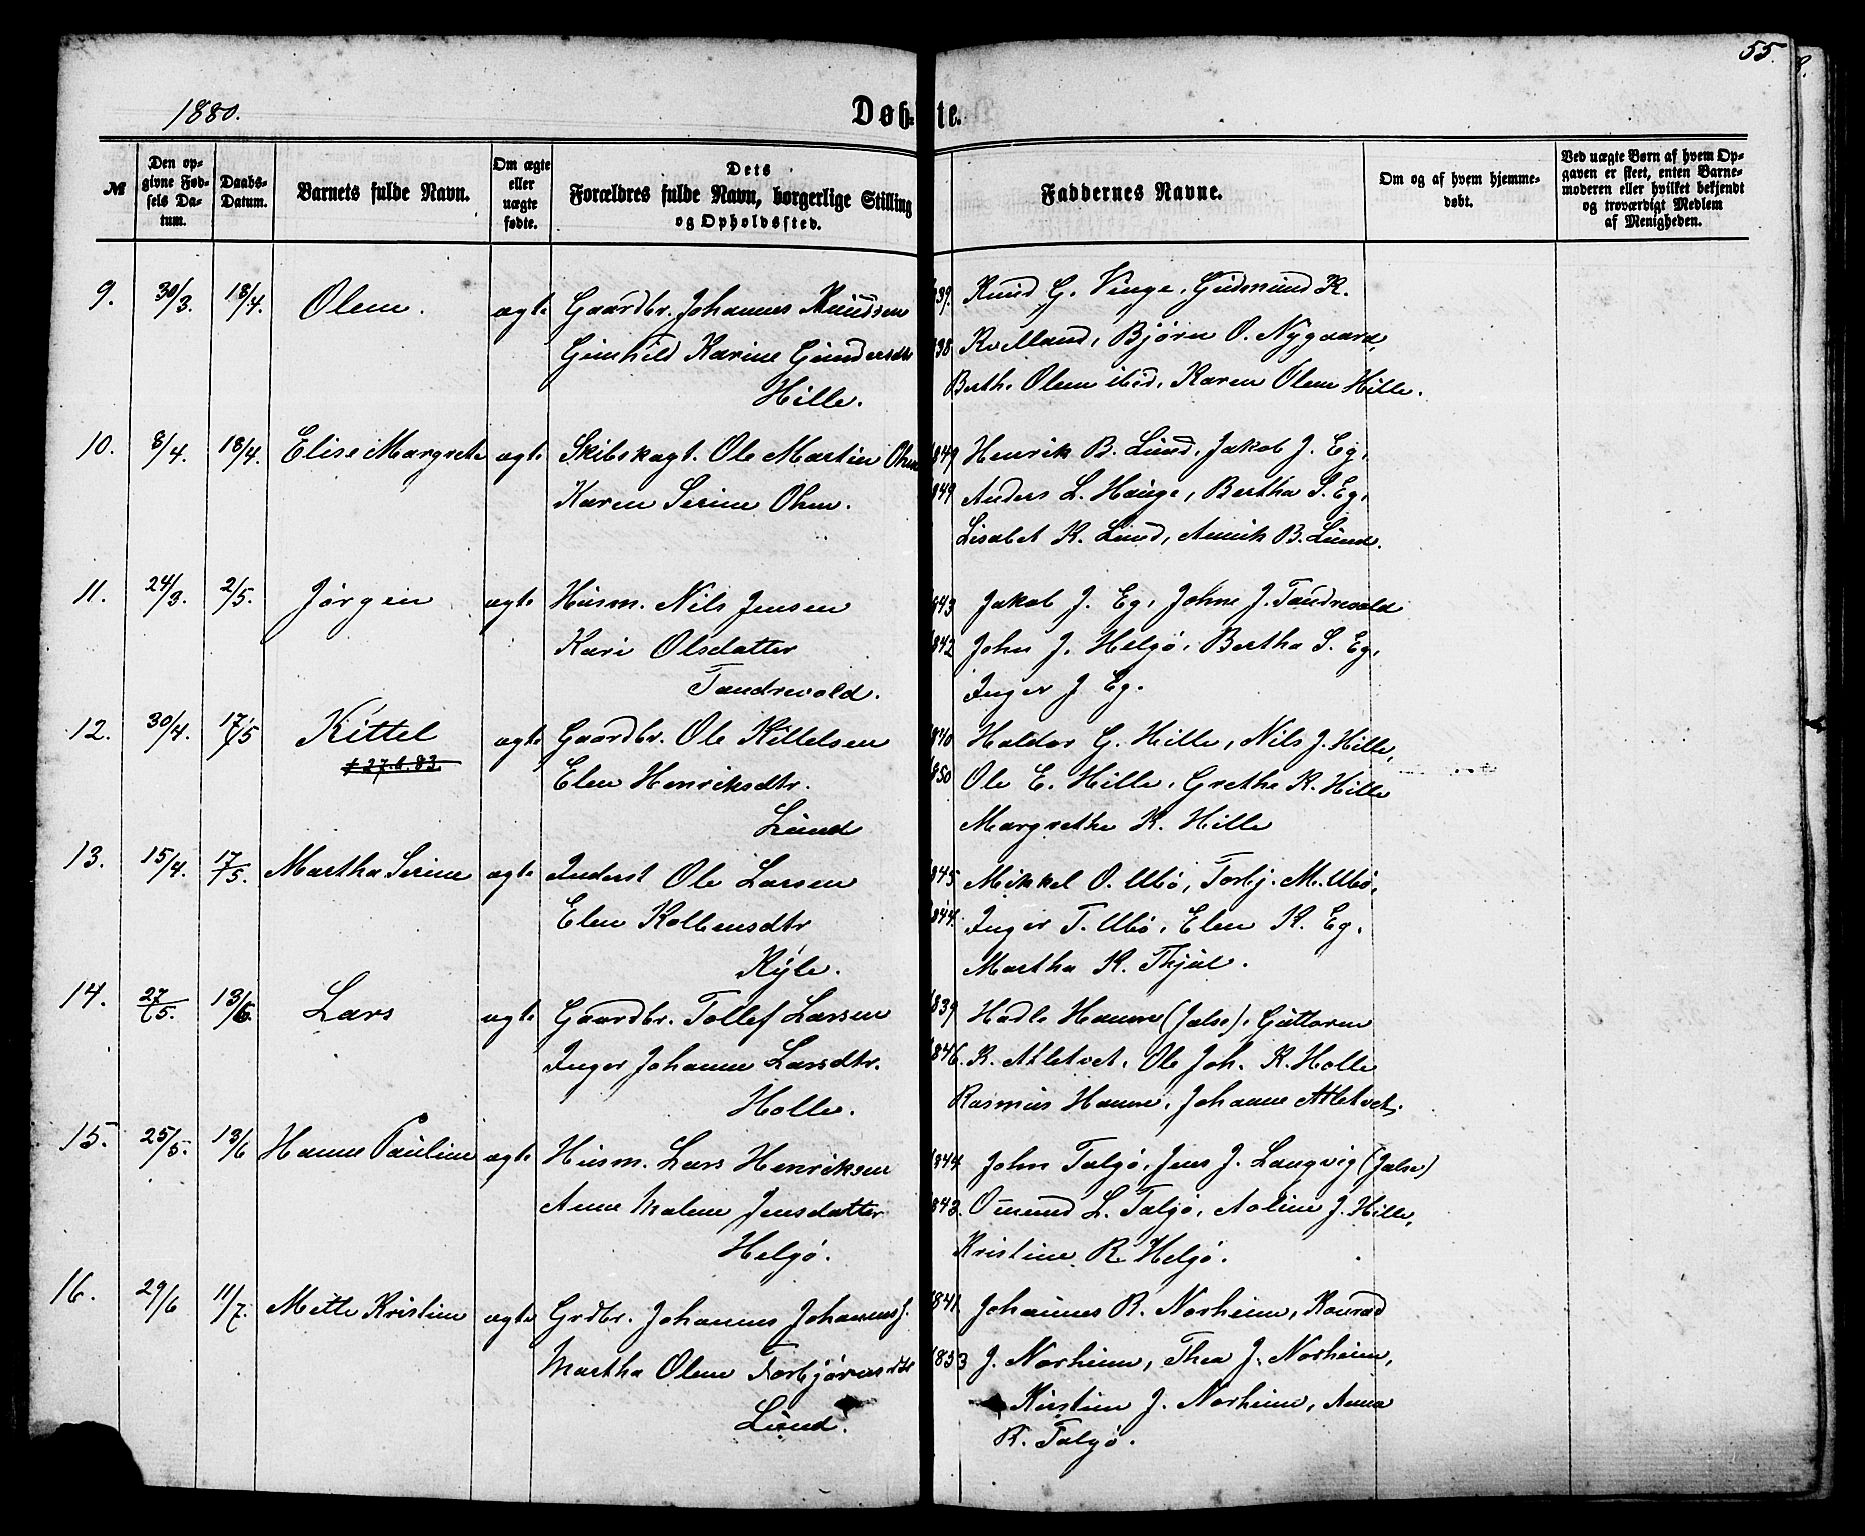 55.
1880.
Døbte.
№
Den opgivne Fødsels Datum.
Daabs-Datum.
Barnets fulde Navn.
Om ægte eller uægte fødte.
Dets Forældres fulde Navn, borgerlige Stilling og Opholdssted.
Faddernes Navne.
Om og af hvem hjemmedøbt.
Ved uægte Børn af hvem Opgaven er skeet, enten Barnemoderen eller hvilket bekjendt og troværdigt Medlem af Menigheden.
9. 30/3. 18/4. Olem. ægte Gaardbr. Johannes Knudsen 839. Knud G. Vinge, Gudmund K.
Gunhild Karine Gundersdtr 838 Kvilland, Bjørn O. Nygaard,
Hille. Berth. Olem ibid, Karen Olem Hille.
10. 8/4. 18/4. Elise Margrete ægte Skibskapt. Ole Martin Ohm 849 Henrik B. Lund, Jakob J. Eg,
Karen Serine Ohm. 849 Anders L. Hauge, Bertha S. Eg,
Lisabet K. Lund, B. Lund.
11. 24/3. 2/5. Jørgen ægte Husm. Nils Jensen 843 Jakob J. Eg, Johne J. Tandrevold
Kari Olsdatter 842 John J. Helgø, Bertha S. Eg,
Tandrevold. Inger J Eg.
12. 30/4. 17/5 Kittel ægte Gaardbr. Ole Kittelsen 840 Haldor G. Hille, Nils J. Hille,
† 27.6.83. Elen Henriksdtr. 850 Ole E. Hille, Grethe K. Hille
Lund Margrethe K. Hille
13. 15/4. 17/5. Martha Serine ægte Inderst Ole Larsen 845 Mikkel O. Ubø, Torbj. M. Ubø,
Elen Kolbensdtr 844. Inger T. Ubø, Elen K. Eg,
Kyle. Martha K. Thjul.
14. 27/5. 13/6. Lars ægte Gaardbr. Tollef Larsen 839 Hadle Hamre (Jelse), Guttorm
Inger Johanne Larsdtr. 1846. K. Atletvet, Ole Joh. K. Holle
Holle. Rasmus Hamre, Johanne Atletvet,
15. 25/5. 13/6 Hanne Pauline ægte Husm. Lars Henriksen 1844 John Talgø, Jens J. Langvig (Jelse)
Anne Malene Jensdatter 843. Omund L. Talgø, Aoline J. Hille,
Helgø. Kristine R. Helgø.
16. 29/6 11/7. Mette Kristine ægte Grdbr. Johannes Johannes J. 1841 Johannes R. Norheim, Konrad
Martha Olene Torbjørnsdtr 1853 J. Norheim, Thea J. Norheim,
Lund. Kirstine J. Norheim, Anna
R. Talgø.